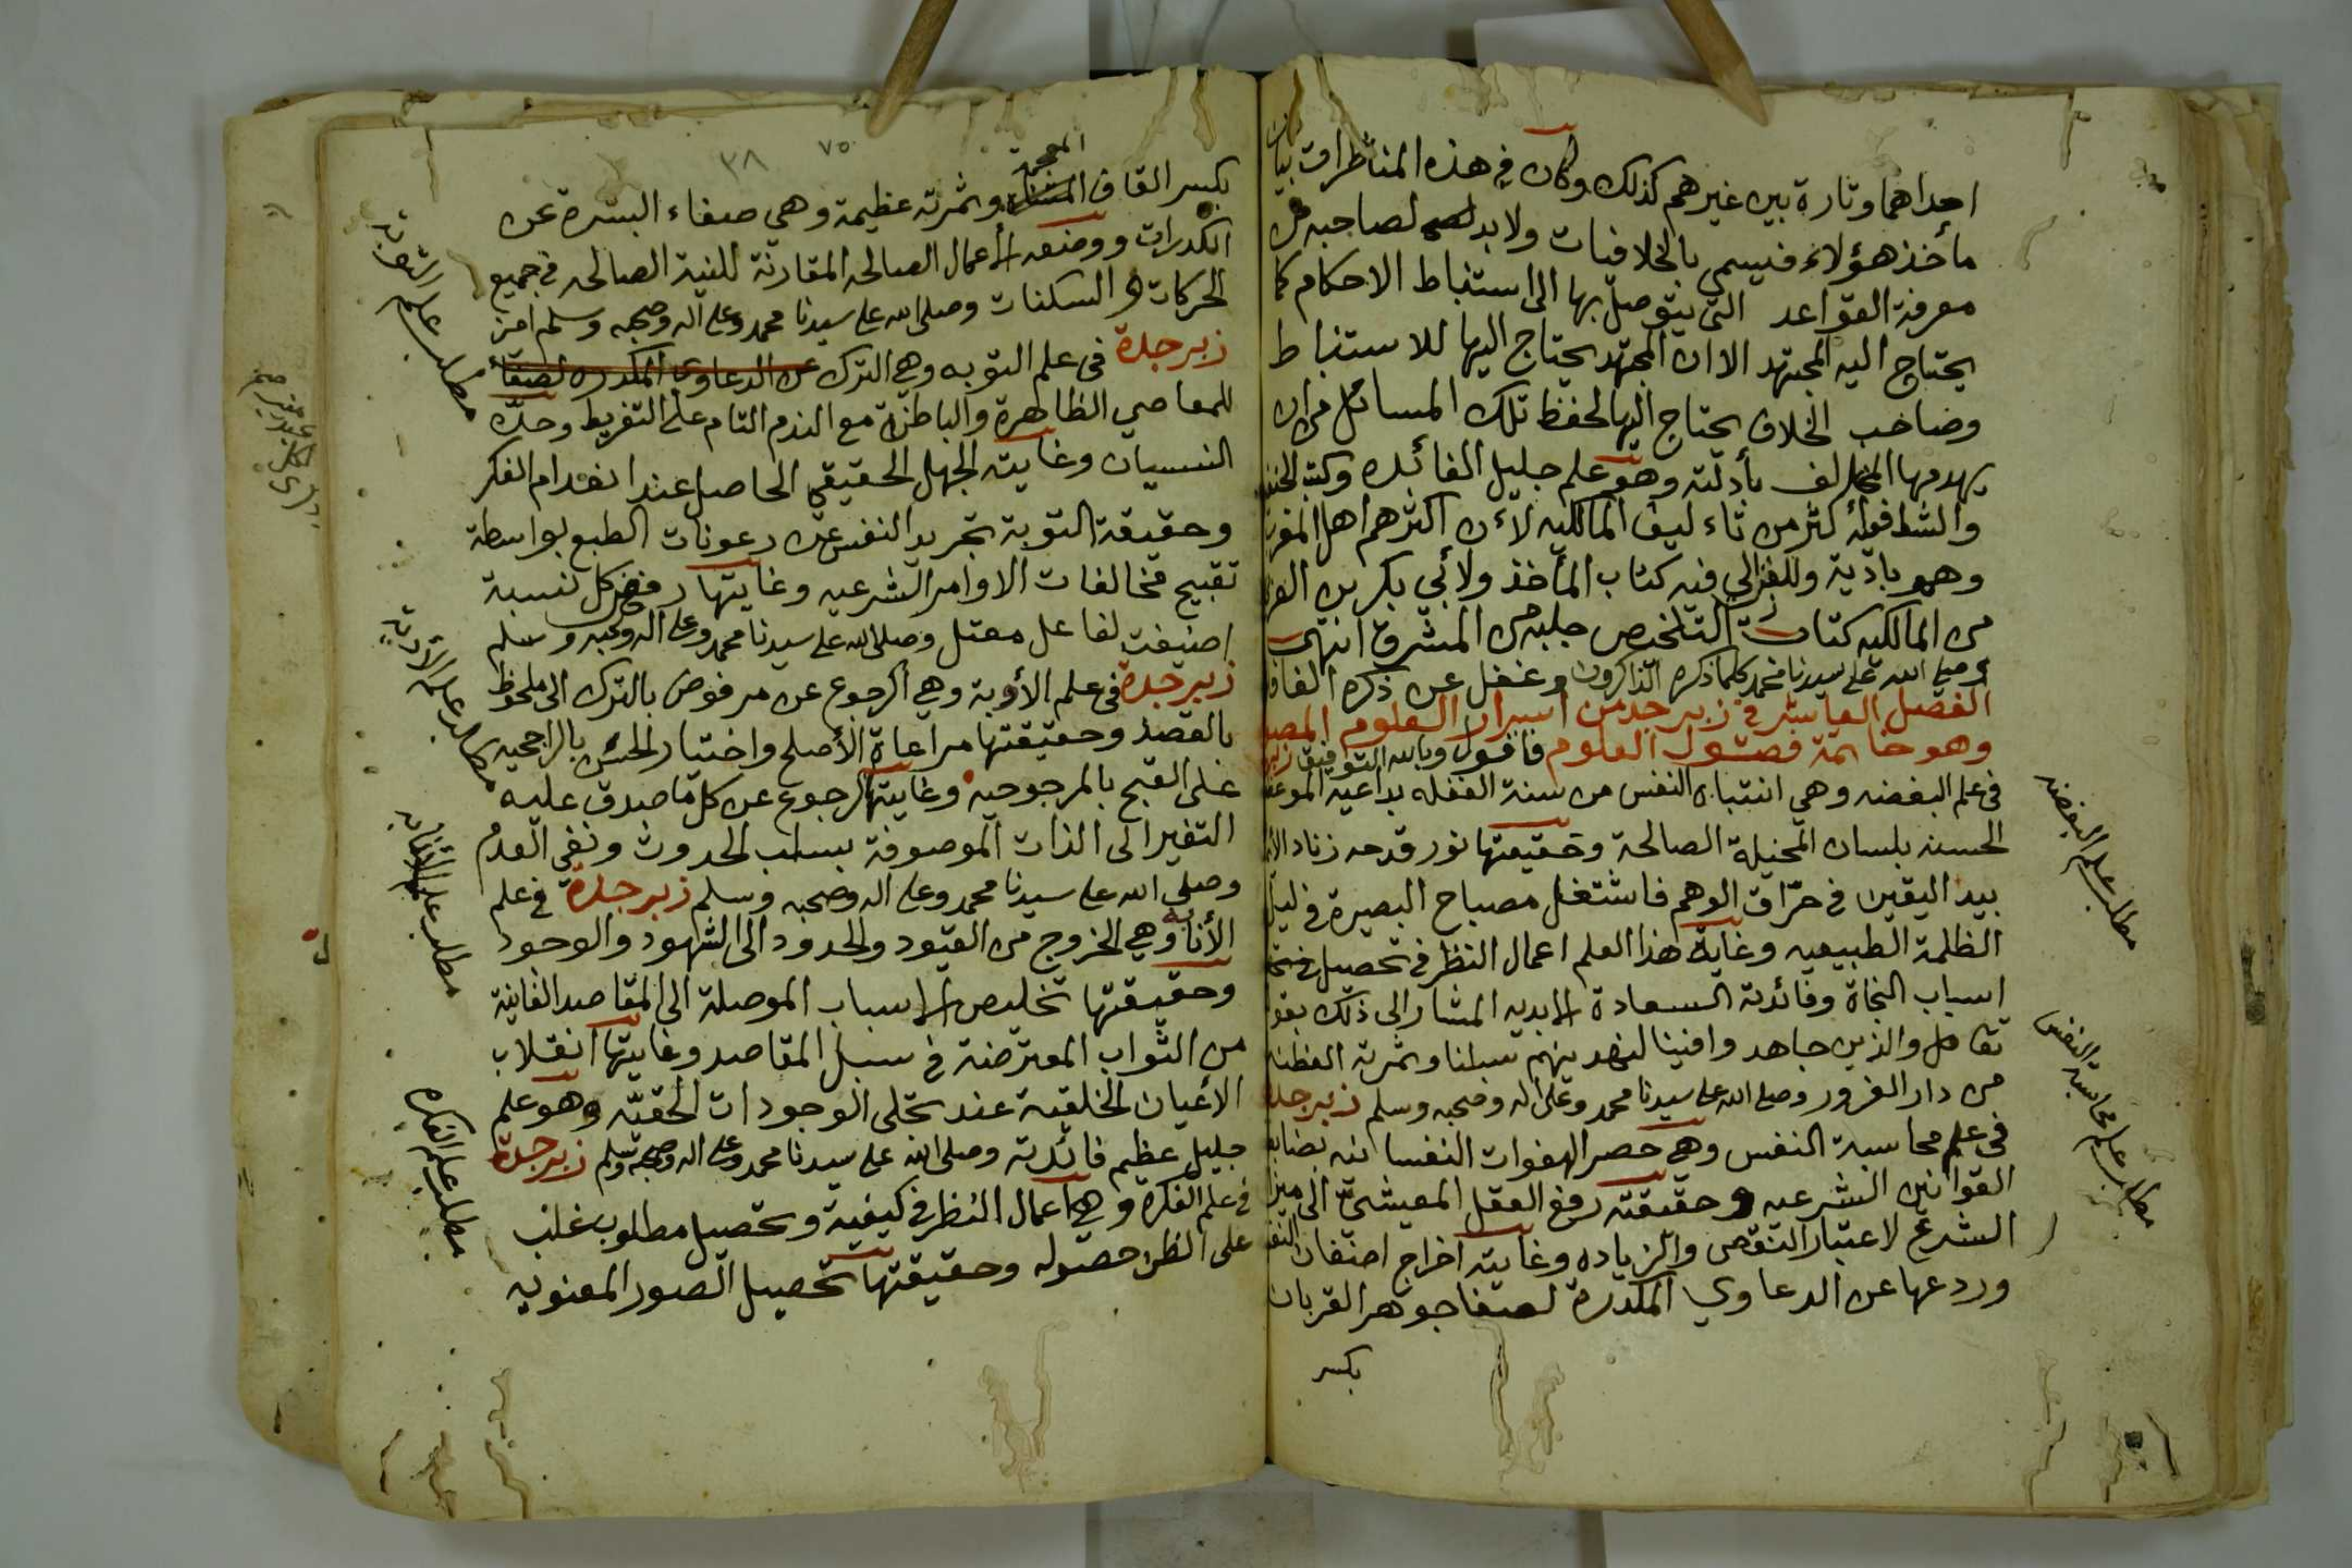 احداهما وتارة بين غيرهم كذلك وكان في هذه المناظرات بيان
مأخذ هؤلاء فيسمى بالخلافيات ولابد لصاحبه من
معرفة القواعد التي يتوصل بها الى استنباط الاحكام كما
يحتاج اليه المجتهد الا ان المجتهد يحتاج اليها للاستنباط
وصاحب الخلاف يحتاج اليها لحفظ تلك المسائل من ان
يهدمها المخالف بأدلته وهو علم جليل الفائده وكتب
والشافعيه أكثر من تاءليف المالكيه لاءن اكثرهم اهل المغرب
وهم بادية وللغزالي فيه كتاب المأخذ ولأبي بكر بن
من المالكيه كتاب التلخيص جلبه من المشرق انتهى
وصلى الله على سيدنا محمد كلما ذكره الذاكرون وغفل عن ذكره
الفصل العاشر في زبرجد من اسرار العلوم
وهو خاتمة فصول العلوم فاقول وبالله التوفيق
في علم اليقضه وهي انتباه النفس من سنة الغفله بداعية
الحسنه بلسان المخيلة الصالحة وحقيقتها نور قدحه زناد
بيد اليقين في حرّاق الوهم فاشتغل مصباح البصيرة في ليل
الظلمة الطبيعيه وغاية هذا العلم اعمال النظر في تحصيل
اسباب النجاة وفائدته السعادة الابديه المشار الى ذلك
تعالى والذين جاهدوا فينا لنهدينهم سبلنا وثمرته
من دار الغرور وصلى الله على سيدنا محمد وعلى اله وصحبه وسلم زبرجدة
في علم محاسبة النفس وهي حصر الهفوات النفسانيه
القوانين الشرعيه وحقيقته رفع العقل المعيشي الى
الشرعي لاعتبار النقص والزياده وغايته اخراج
وردعها عن الدعاوي المكدرة لصفا جوهر القربان
بكسر
مطلب علم اليقضه
مطلب علم محاسبة النفس
٧٥
٣٨
المعجمة
بكسر القاف وثمرته عظيمة وهي صفاء السرة عن
الكدرات ووضعه الأعمال الصالحه المقارنة للنية الصالحه في جميع
الحركات والسكنات وصلى الله على سيدنا محمد وعلى اله وصحبه وسلم
زبرجدة في علم التوبه وهي الترك عن الدعاوي المكدره لصفاء
للمعاصي الظاهرة والباطنة مع الندم التام على التفريط وحدّه
النسيان وغايته الجهل الحقيقي الحاصل عند انعدام الفكر
وحقيقة التوبة تجريد النفس عن رعونات الطبع بواسطة
تقبيح مخالفات الاوامر الشرعيه وغايتها رفض كل نسبة
اضيفت لفاعل معتل وصلى الله على سيدنا محمد وعلى اله وصحبه وسلم
زبرجدة في علم الأوبة وهي الرجوع عن مرفوض بالترك الى ملحوظ
بالقصد وحقيقتها مراعاة الأصلح واختيار الحسن بالراجحيه
على القبح بالمرجوحيه وغايتها الرجوع عن كل ما صدق عليه
التغير الى الذات الموصوفة بسلب الحدوث ونفي العدم
وصلى الله على سيدنا محمد وعلى اله وصحبه وسلم زبرجدة في علم
الأنابه وهي الخروج من القيود والحدود الى الشهود والوجود
وحقيقتها تخليص الاسباب الموصلة الى المقاصد الغائية
من الثواب المعترضة في سبل المقاصد وغايتها انقلاب
الأعيان الخلقية عند تجلى الوجودات الحقيّه وهو علم
جليل عظيم فائدته وصلى الله على سيدنا محمد وعلى اله وصحبه وسلم زبرجدة
في علم الفكرة وهي اعمال النظر في كيفية وتحصيل مطلوب غلب
على الظن حصوله وحقيقتها تحصيل الصور المعنويه
مطلب علم التوبه
مطلب علم الأوبه
مطلب علم الأنابه
مطلب علم الفكره